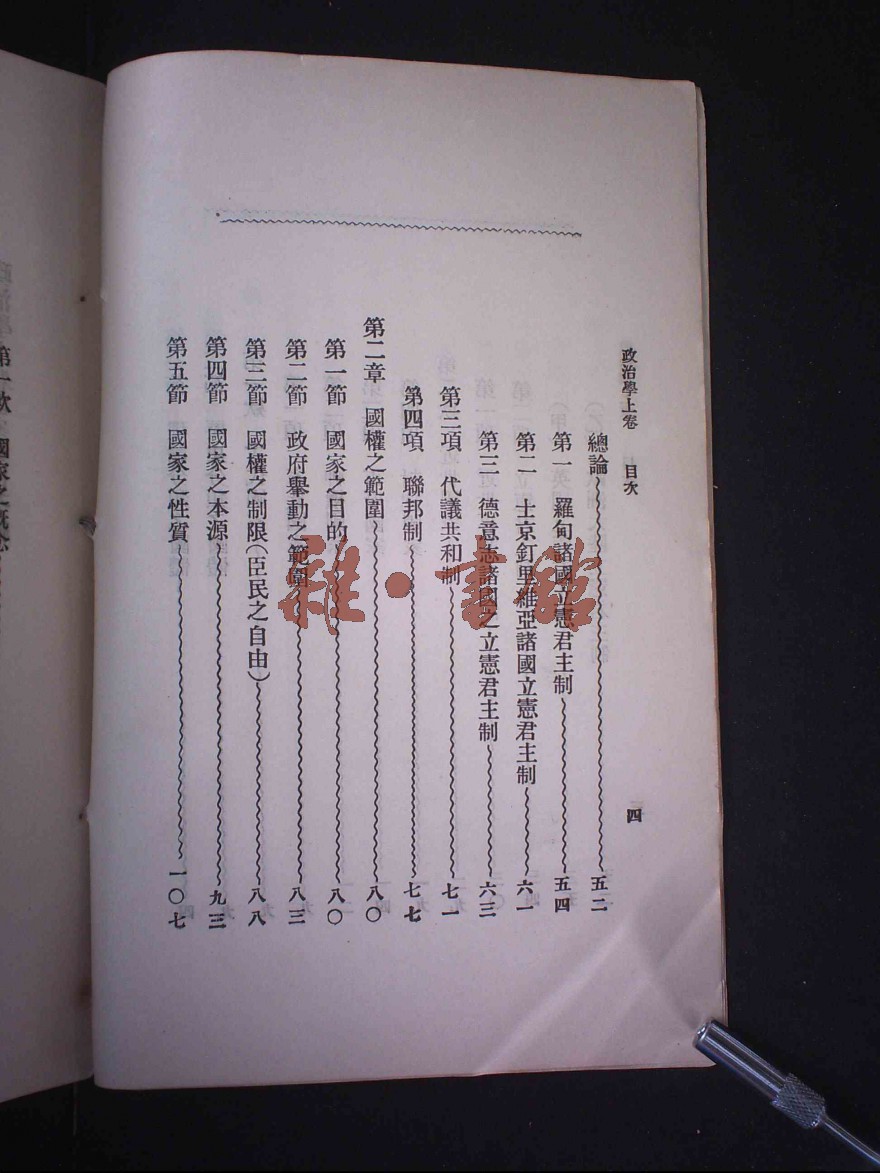 政治學上卷 目次 四
總論 五二
第一 羅甸諸國立憲君主制 五四
第二 士京釘里維亞諸國立憲君主制 六一
第三 德意志諸國之立憲君主制 六三
第三項 代議共和制 七一
第四項 聯邦制 七七
第二章 國權之範圍 八〇
第一節 國家之目的 八〇
第二節 政府舉動之範圍 八三
第三節 國權之制限(臣民之自由) 八八
第四節 國家之本源 九三
第五節 國家之性質 一〇七
第一款 國家之概念
雜·書館